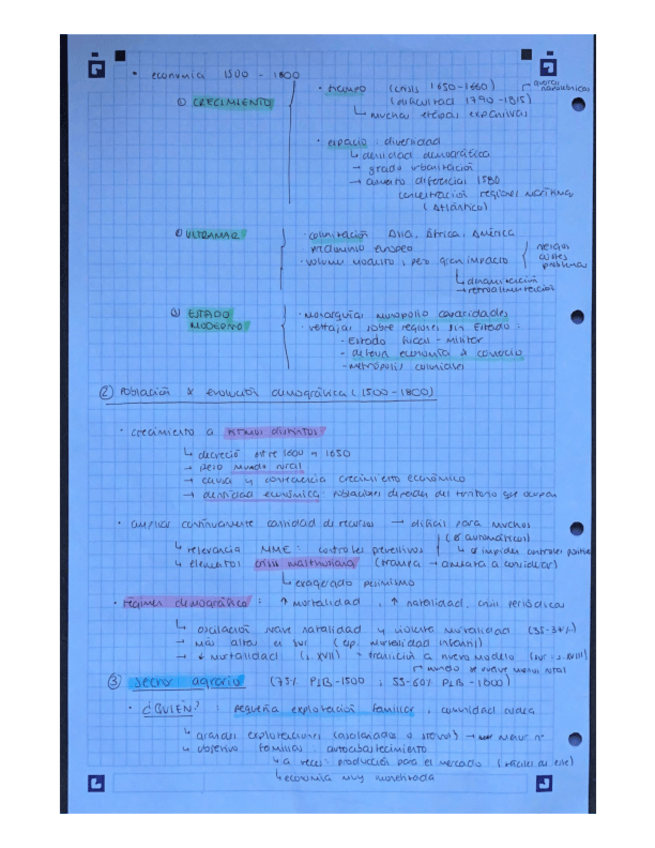 • economía 1500 - 1800
① CRECIMIENTO
• tiempo (crisis 1650-1660)
(dificultad 1790-1815) guerras napoleónicas
↳ muchas etapas expansivas
• espacio : diversidad
↳ densidad demográfica
→ grado urbanización
→ aumento diferencial 1580
concentración regiones marítimas
(Atlántico)
② ULTRAMAR
• colonización Asia, África, América
predominio europeo
• volumen modesto, pero gran impacto
↳ dinamización
→ retroalimentación
③ ESTADO MODERNO
• monarquías monopolio
• ventajas sobre regiones sin Estado :
- Estado fiscal - militar
- defensa economía & comercio
- metrópolis coloniales
② Población & evolución demográfica (1500-1800)
• crecimiento a ritmos distintos
↳ decreció entre 1600 y 1650
→ peso mundo rural
→ causa y consecuencia crecimiento económico
→ densidad económica: poblaciones dependen del territorio que ocupan
• ampliar continuamente cantidad de recursos → difícil para muchos
(es automático)
↳ relevancia MME : controles preventivos
↳ impiden controles positivos
↳ elementos crisis malthusiana (trampa →
↳ exagerado pesimismo
• régimen demográfico : ↑ mortalidad, ↑ natalidad, crisis periódicas
↳ oscilación suave natalidad y violenta mortalidad (35-34‰)
→ más altas en sur (esp. mortalidad infantil)
→ ↓ mortalidad (s. XVII) = transición a nuevo modelo (sur : s. XVIII)
mundo se vuelve menos rural
③ Sector agrario (75% PIB-1500 ; 55-60% PIB-1800)
• ¿QUIÉN? : pequeña explotación familiar, comunidad aldea
↳ grandes explotaciones (asalariados o siervos) → menor nº
↳ objetivo familias : autoabastecimiento
↳ a veces: producción para el mercado
↳ economía muy monetizada